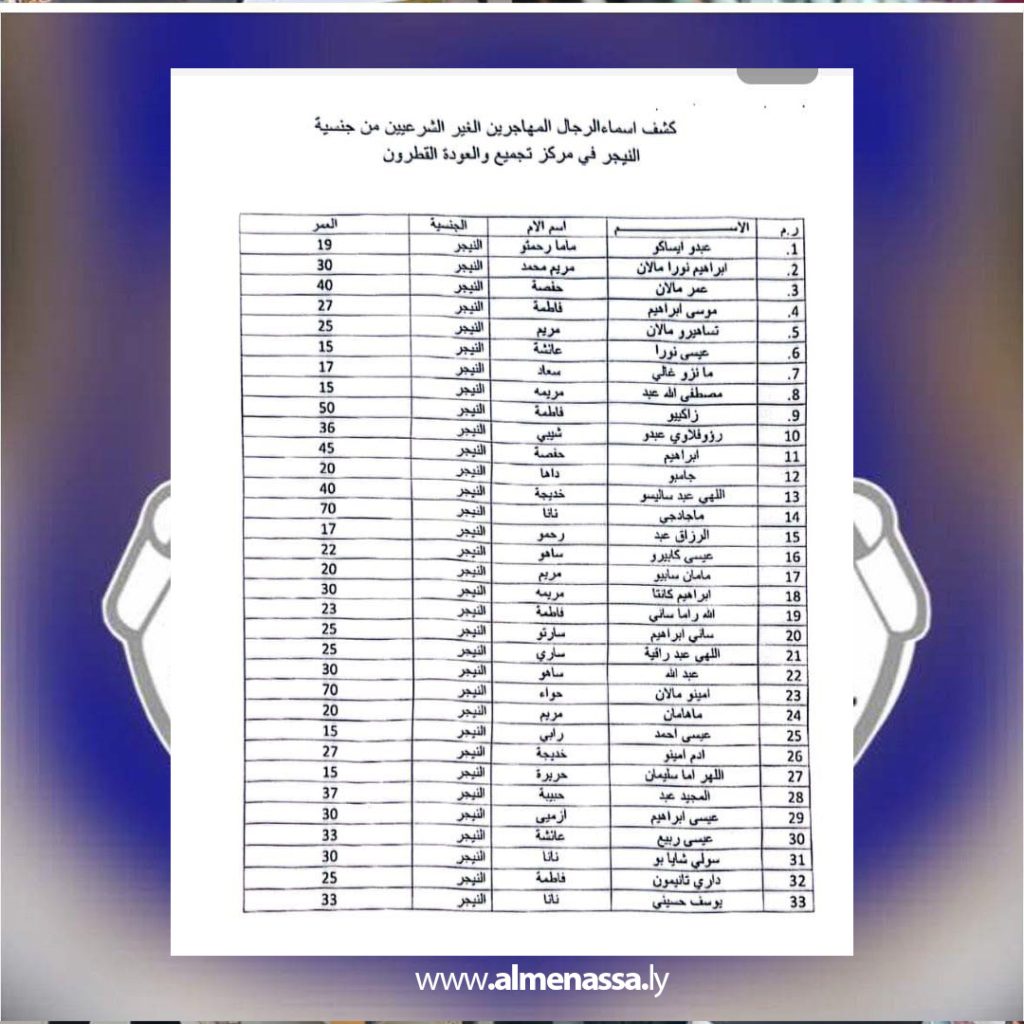 كشف اسماءالرجال المهاجرين الغير الشرعيين من جنسية
النيجر في مركز تجميع والعودة القطرون
ر.م الاســـــــــم اسم الام الجنسية العمر
1. عبدو ايساكو ماما رحمتو النيجر 19
2. ابراهيم نورا مالان مريم محمد النيجر 30
3. عمر مالان حفصة النيجر 40
4. موسى ابراهيم فاطمة النيجر 27
5. تساهيرو مالان مريم النيجر 25
6. عيسى نورا عائشة النيجر 15
7. ما نزو غالي سعاد النيجر 17
8. مصطفى الله عبد مريمه النيجر 15
9. زاكيبو فاطمة النيجر 50
10 رزوفلاوي عبدو شيبي النيجر 36
11 ابراهيم حفصة النيجر 45
12 جامبو داها النيجر 20
13 اللهي عبد ساليسو خديجة النيجر 40
14 ماجادجي نانا النيجر 70
15 الرزاق عبد رحمو النيجر 17
16 عيسى كابيرو ساهو النيجر 22
17 مامان سابيو مريم النيجر 20
18 ابراهيم كانتا مريمه النيجر 30
19 الله راما ساني فاطمة النيجر 23
20 ساني ابراهيم سارتو النيجر 25
21 اللهي عبد راقية ساري النيجر 25
22 عبد الله ساهو النيجر 30
23 امينو مالان حواء النيجر 70
24 ماهامان مريم النيجر 20
25 عيسى احمد رابي النيجر 15
26 ادم امينو خديجة النيجر 27
27 اللهر اما سليمان حريرة النيجر 15
28 المجيد عبد حبيبة النيجر 37
29 عيسى ابراهيم ازميى النيجر 30
30 عيسى ربيع عائشة النيجر 33
31 سولي شايا بو نانا النيجر 30
32 داري تانيمون فاطمة النيجر 25
33 يوسف حسيني نانا النيجر 33
www.almenassa.ly